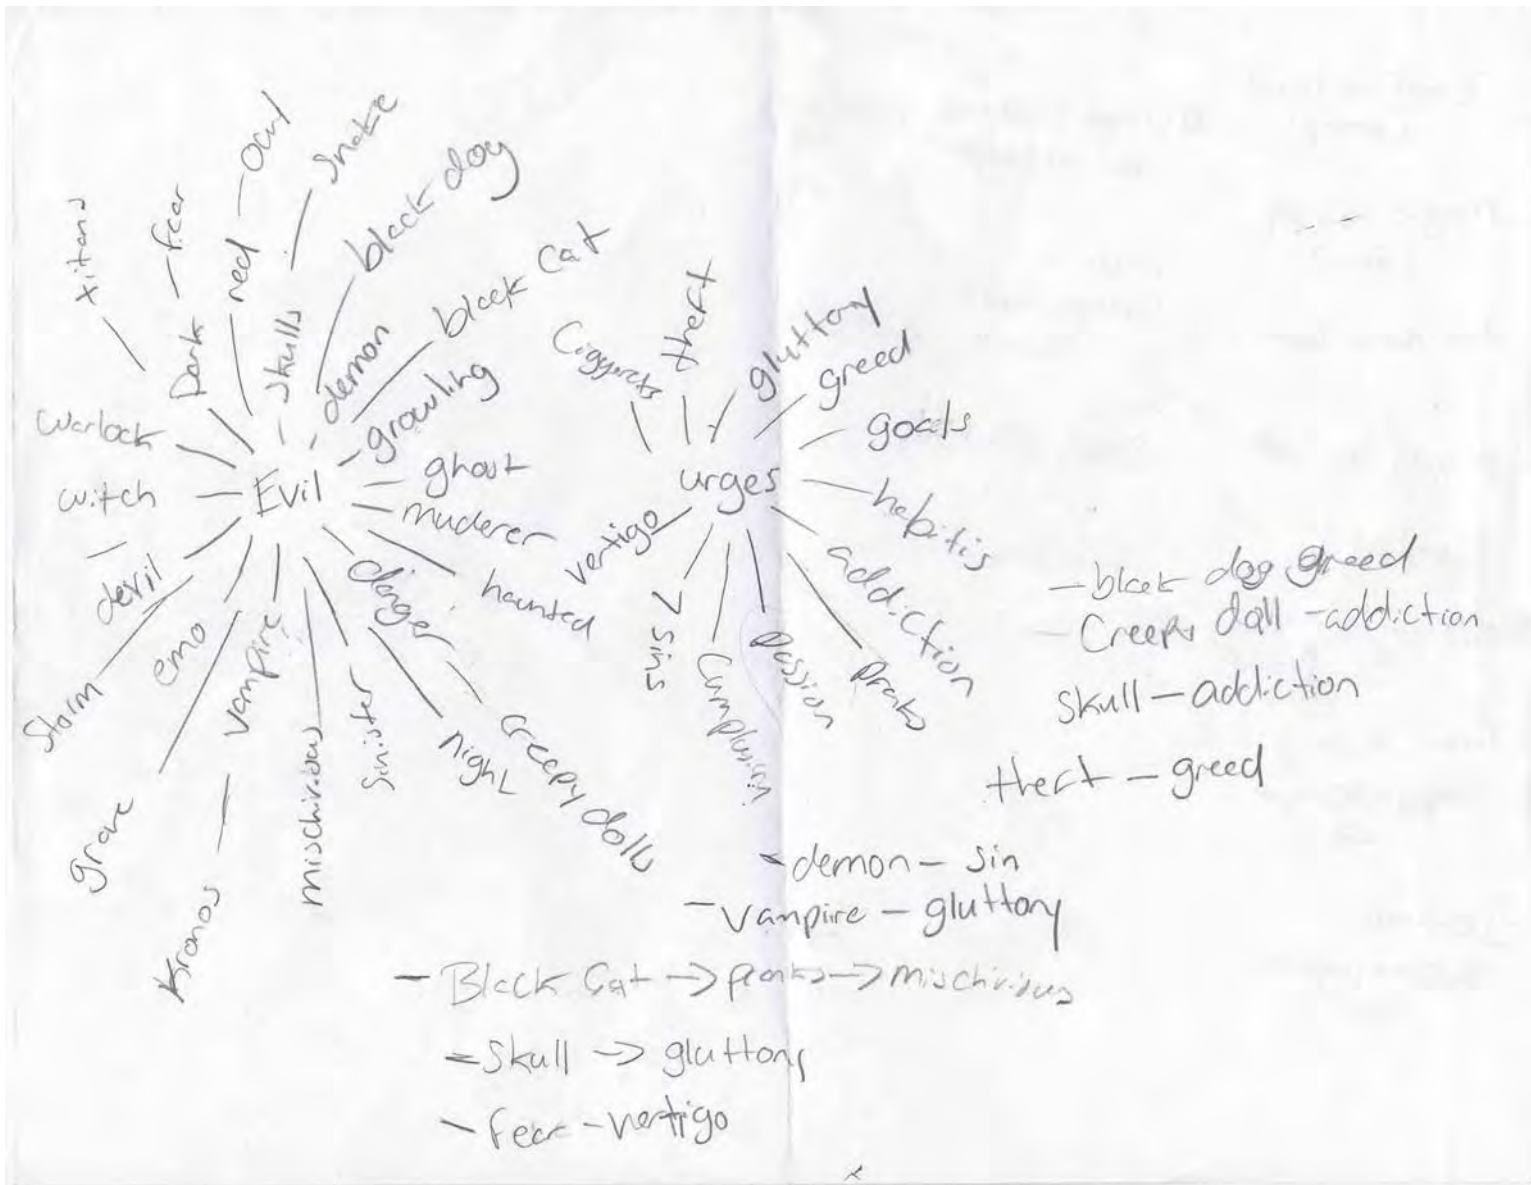 titans
Dark — fear
red — Owl
Skulls — Snake
black dog
demon
black cat
growling
ghost
muderer
haunted
danger — creepy dolls
night
sinister
mischivious
vampire — Kronos
grave
emo
Storm
devil
witch
warlock
Evil
theft
gluttony
greed
goals
habitis
addiction
pranks
passion
sins
vertigo
urges
— black dog greed
— Creepy doll - addiction
Skull — addiction
theft — greed
- demon — sin
— vampire — gluttony
— Black Cat -> pranks -> mischivious
- Skull -> gluttony
- fear - vertigo